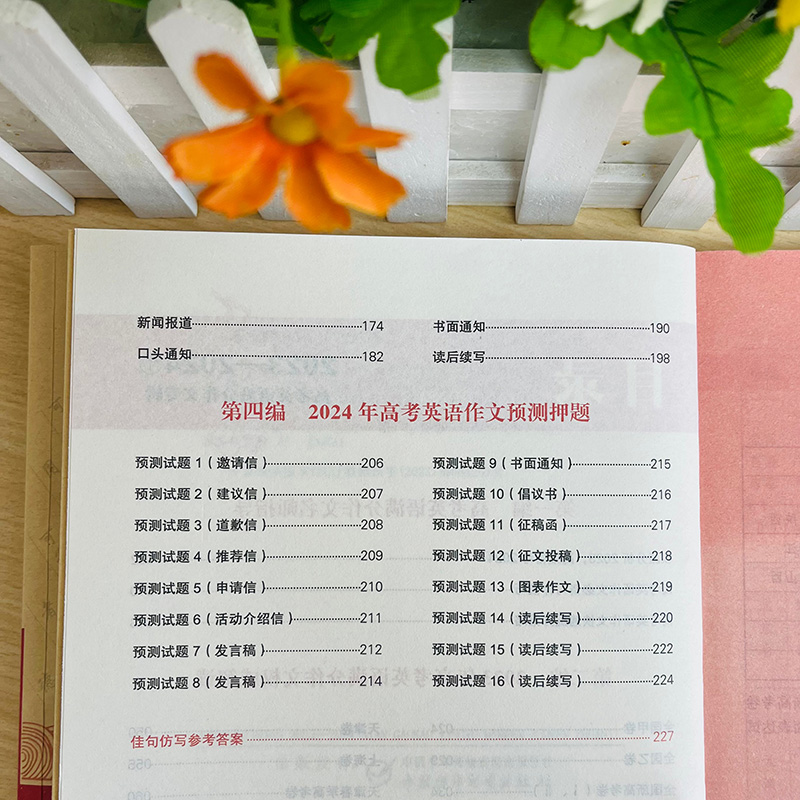 新闻报道……174 书面通知……190
口头通知……182 读后续写……198
第四编 2024年高考英语作文预测押题
预测试题1（邀请信）……206 预测试题9（书面通知）……215
预测试题2（建议信）……207 预测试题10（倡议书）……216
预测试题3（道歉信）……208 预测试题11（征稿函）……217
预测试题4（推荐信）……209 预测试题12（征文投稿）……218
预测试题5（申请信）……210 预测试题13（图表作文）……219
预测试题6（活动介绍信）……211 预测试题14（读后续写）……220
预测试题7（发言稿）……212 预测试题15（读后续写）……222
预测试题8（发言稿）……214 预测试题16（读后续写）……224
佳句仿写参考答案……227